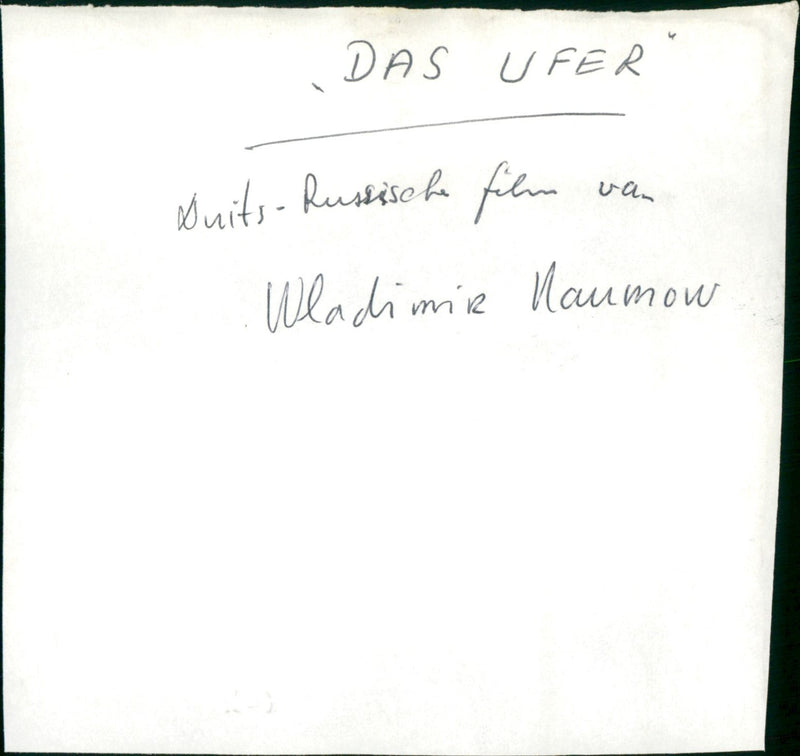 „DAS UFER"
Duits-Russische film van
Wladimir Naumow